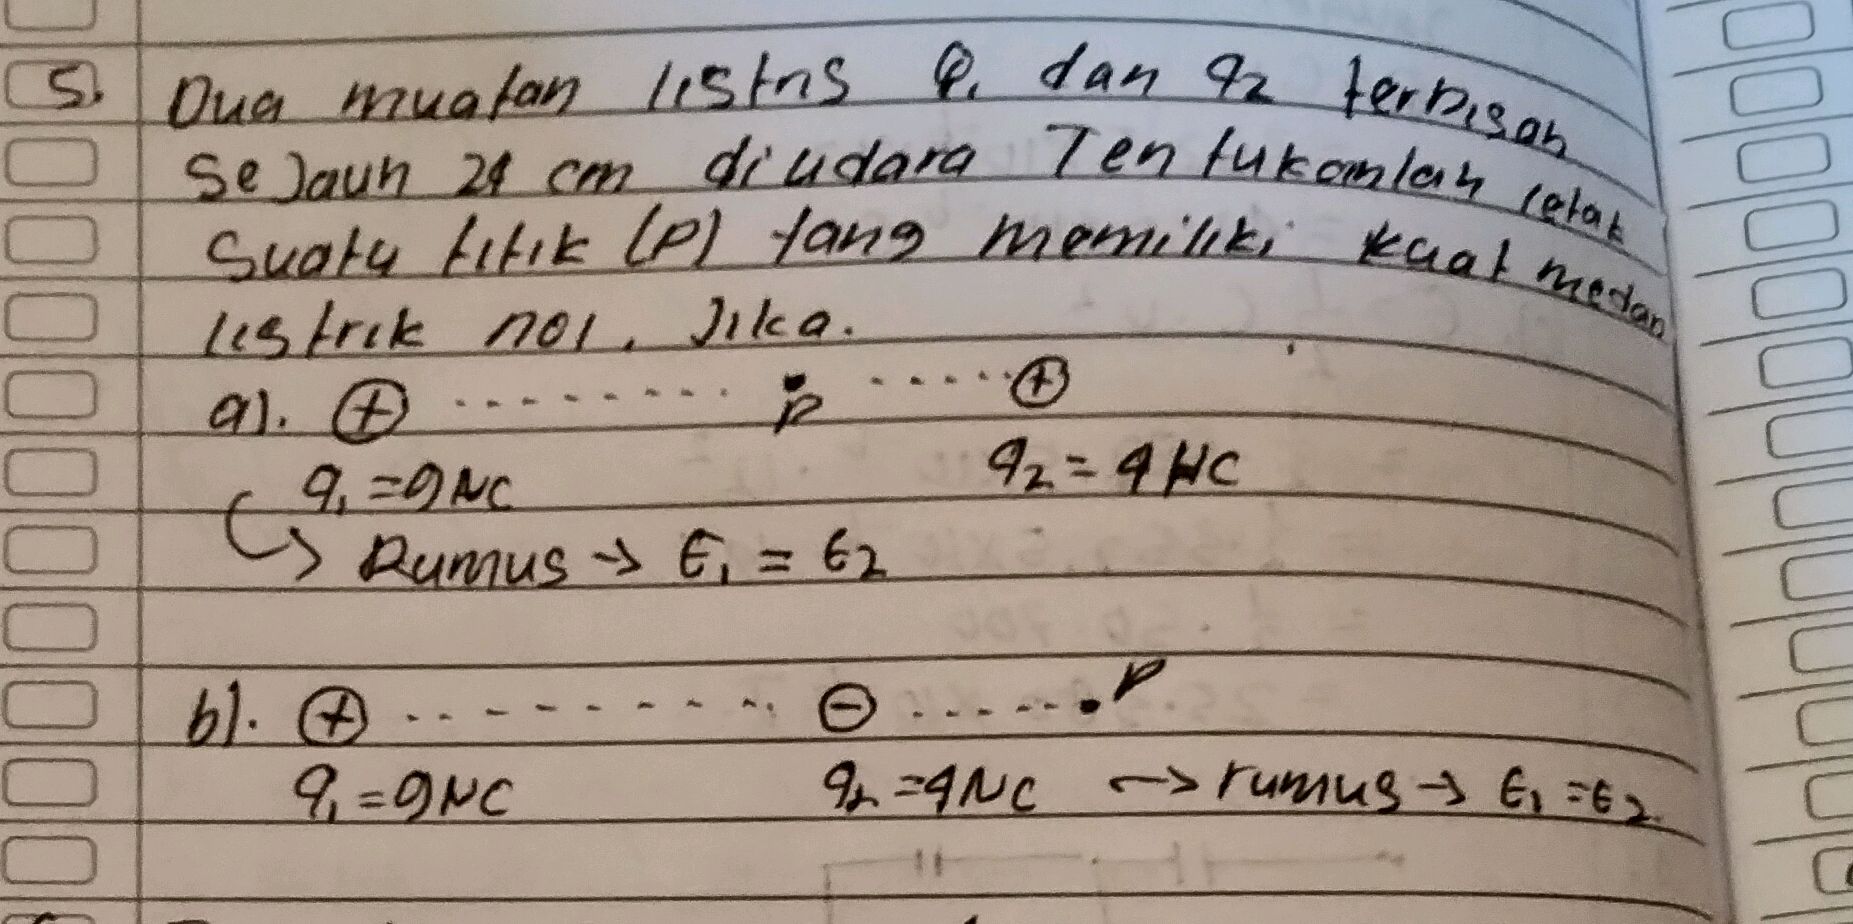 5. Dua muatan listris Q1 dan q2 terpisah
sejauh 24 cm diudara Tentukanlah letak
Suatu titik (P) yang memiliki kuat medan
listrik nol. Jika.
a). (+) --------- • P ----- (+)
q1 = 9 NC q2 = 4 NC
↳ Rumus → E1 = E2
b). (+) --------- (-) ------ • P
q1 = 9 NC q2 = 4 NC → rumus → E1 = E2.